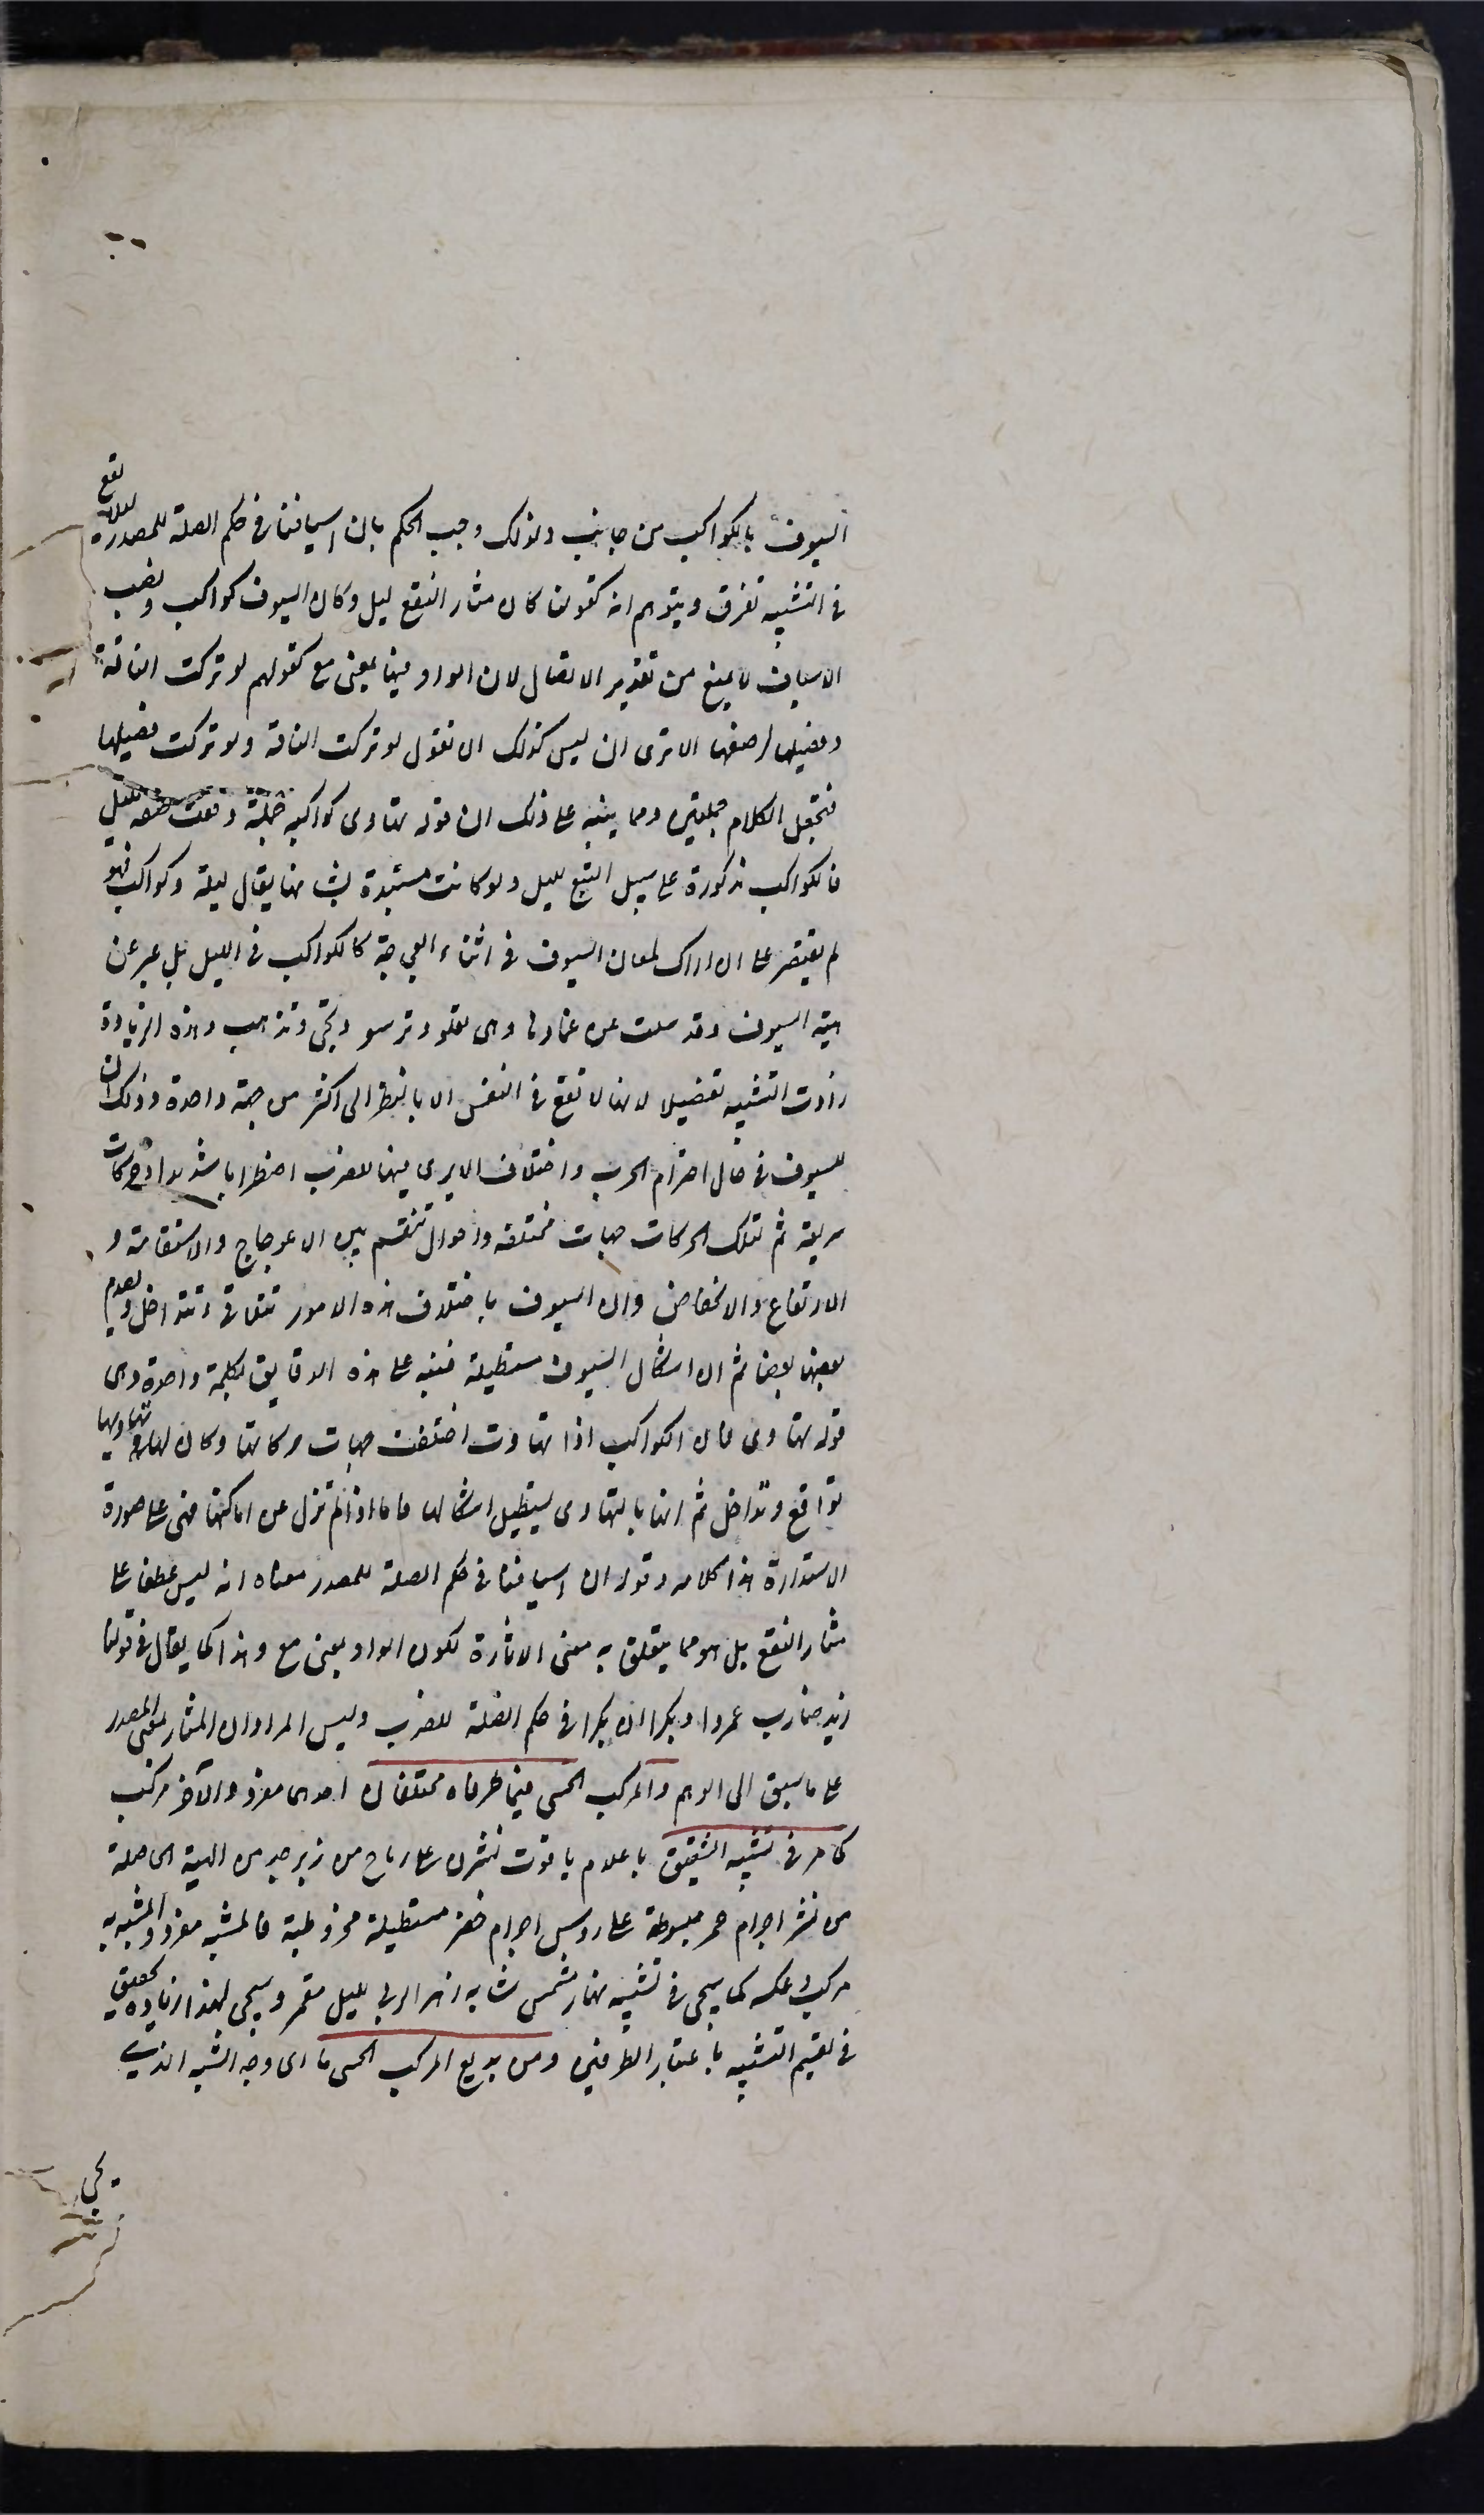 السيوف بالكواكب من جانب ولذلك وجب الحكم بان اسيافنا في حكم الصلة للمصدر لئلا يقع
في التشبيه تفرق ويتوهم انه كقولنا كان مثار النقع ليل وكان السيوف كواكب ونصب
الاسياف لا يمنع من تقدير الاتصال لان الواو فيها بمعنى مع كقولهم لو تركت الناقة
وفصيلها لرضعها الا ترى ان ليس كذلك ان تقول لو تركت الناقة ولو تركت فصيلها
فتجعل الكلام جملتين ومما ينبه على ذلك ان قوله تهاوى كواكبه جملة وقعت صفة لليل
فالكواكب مذكورة على سبيل التبع لليل ولو كانت مستبدة بشانها يقال ليلة وكواكب فهو
لم يقتصر على ان اراك لمعان السيوف في اثناء العجاجة كالكواكب في الليل بل عبر عن
هيئة السيوف وقد سلت من اغمادها وهي تعلو وترسو وتجئ وتذهب وهذه الزيادة
زادت التشبيه تفضيلا لانها لا تقع في النفس الا بالنظر الى اكثر من جهة واحدة وذلك ان
للسيوف في حال احتدام الحرب واختلاف الايدي فيها للضرب اضطرابا شديدا وحركات
سريعة ثم لتلك الحركات جهات مختلفة واحوال تنقسم بين الاعوجاج والاستقامة و
الارتفاع والانخفاض وان السيوف باختلاف هذه الامور تتلاقى وتتداخل ويصدم
بعضها بعضا ثم ان اشكال السيوف مستطيلة فنبه على هذه الدقايق بكلمة واحدة وهي
قوله تهاوى فان الكواكب اذا تهاوت اختلفت جهات حركاتها وكان لها في تهاويها
تواقع وتداخل ثم انها بالتهاوى يستطيل اشكالها فاما اذا لم تزل عن اماكنها فهي على صورة
الاستدارة هذا كلامه وقوله ان اسيافنا في حكم الصلة للمصدر معناه انه ليس عطفا على
مثار النقع بل هو مما يتعلق به معنى الاثارة لكون الواو بمعنى مع وهذا كما يقال في قولنا
زيد ضارب عمروا وبكرا ان بكرا في حكم الصلة للضرب وليس المراد ان المثار بمعنى المصدر
على ما سبق الى الوهم والمركب الحسي فيما طرفاه مختلفان احدهما مفرد والآخر مركب
كما مر في تشبيه الشقيق باعلام ياقوت نشرن على رماح من زبرجد من الهيئة الحاصلة
من نشر اجرام حمر مبسوطة على رؤس اجرام خضر مستطيلة مخروطية فالمشبه مفرد والمشبه به
مركب وعكسه كما سيجئ في تشبيه نهار مشمس شابه زهر الربي بليل مقمر وسيجئ لهذا زيادة تحقيق
في تقسيم التشبيه باعتبار الطرفين ومن بديع المركب الحسي ما اى وجه الشبه الذي
يجئ